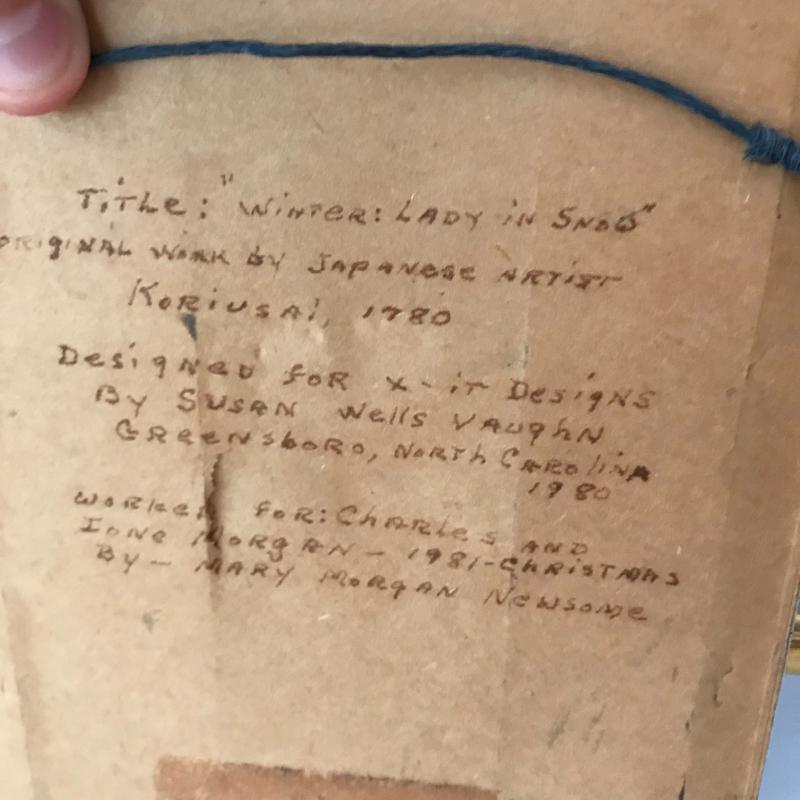 Title: "Winter: Lady in Snow"
original work by Japanese artist
Koriusai, 1780
Designed for x-it Designs
By Susan Wells Vaughn
Greensboro, North Carolina
1980
Worked for: Charles and
Ione Morgan - 1981-Christmas
By - Mary Morgan Newsome